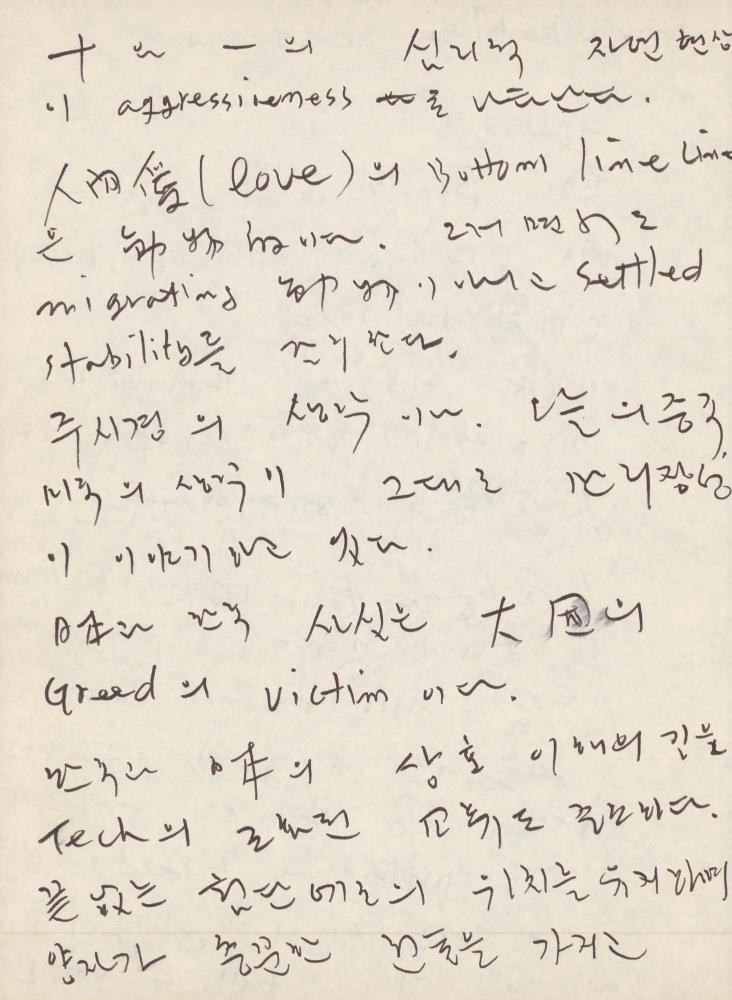 十와 一의 심리적 자연현상
이 aggressiveness 를 나타난다.
人间爱(love)의 Bottom line Line
은 動物的이다. 그러면서도
migrating 動物이 아니고 settled
stability를 관리한다.
주시경의 생각이다. 오늘의 중국
미국의 생각이 그대로
이 이야기하고 있다.
日本과 한국 사실은 大国의
Greed의 victim이다.
한국과 日本의 상호 이해의 길을
Tech의 교류도 필요하다.
끝없는 첨단 에로의 위치를 유지하며
양자가 충분한 것들을 가지고